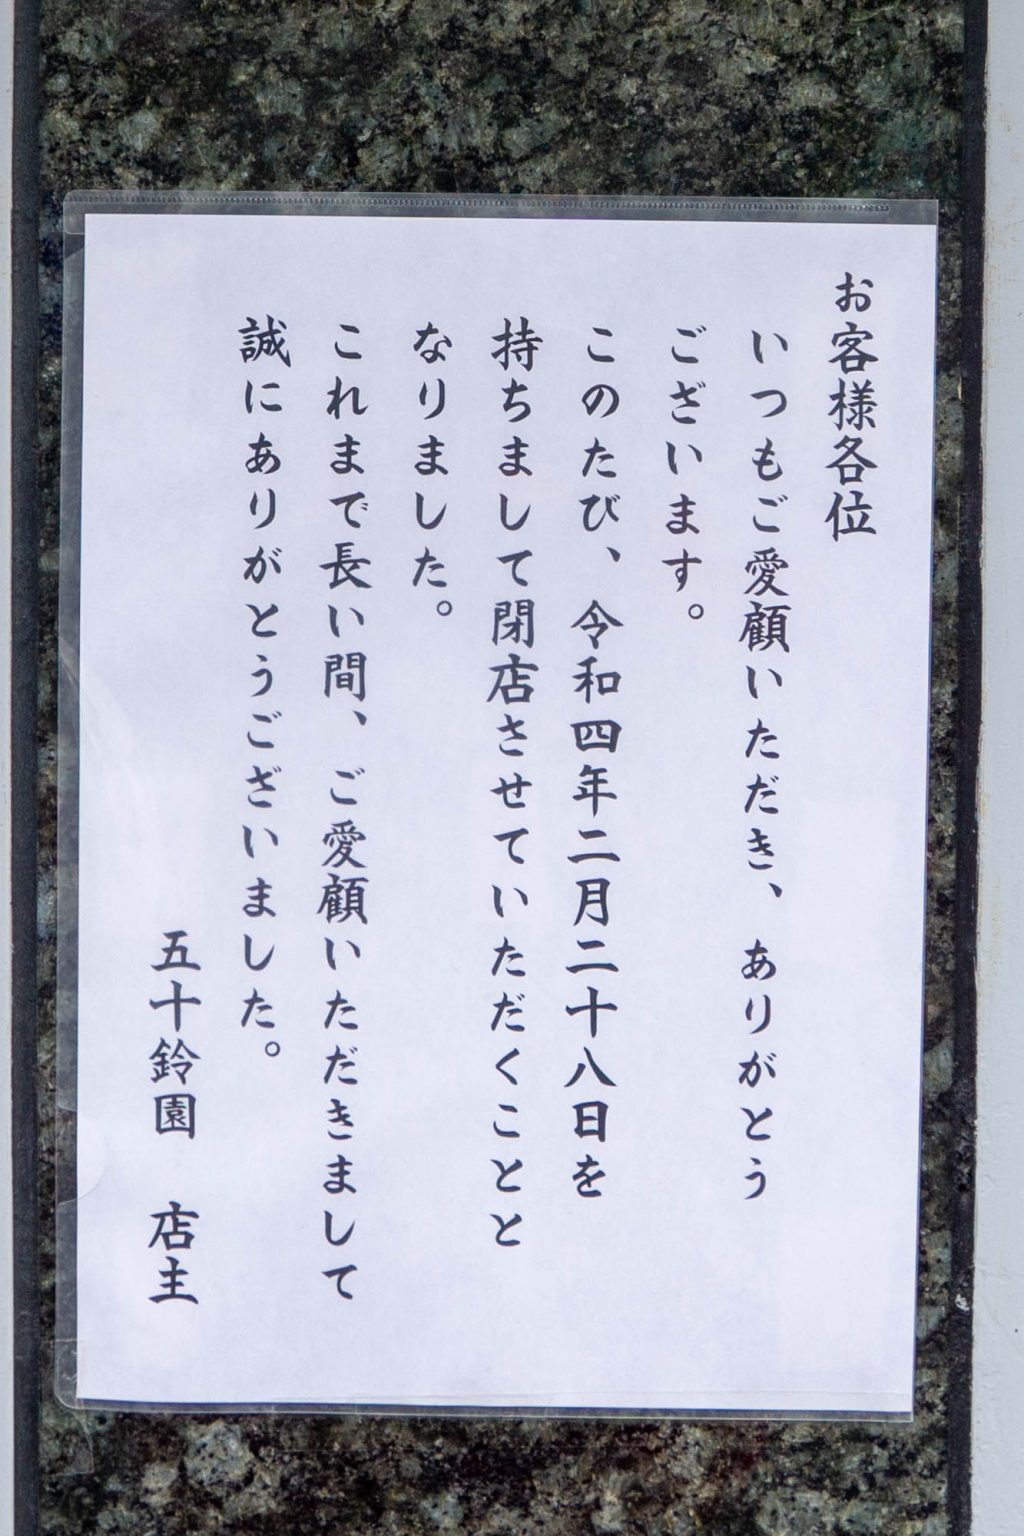 お客様各位
いつもご愛顧いただき、ありがとう
ございます。
このたび、令和四年二月二十八日を
持ちまして閉店させていただくことと
なりました。
これまで長い間、ご愛顧いただきまして
誠にありがとうございました。
五十鈴園　店主